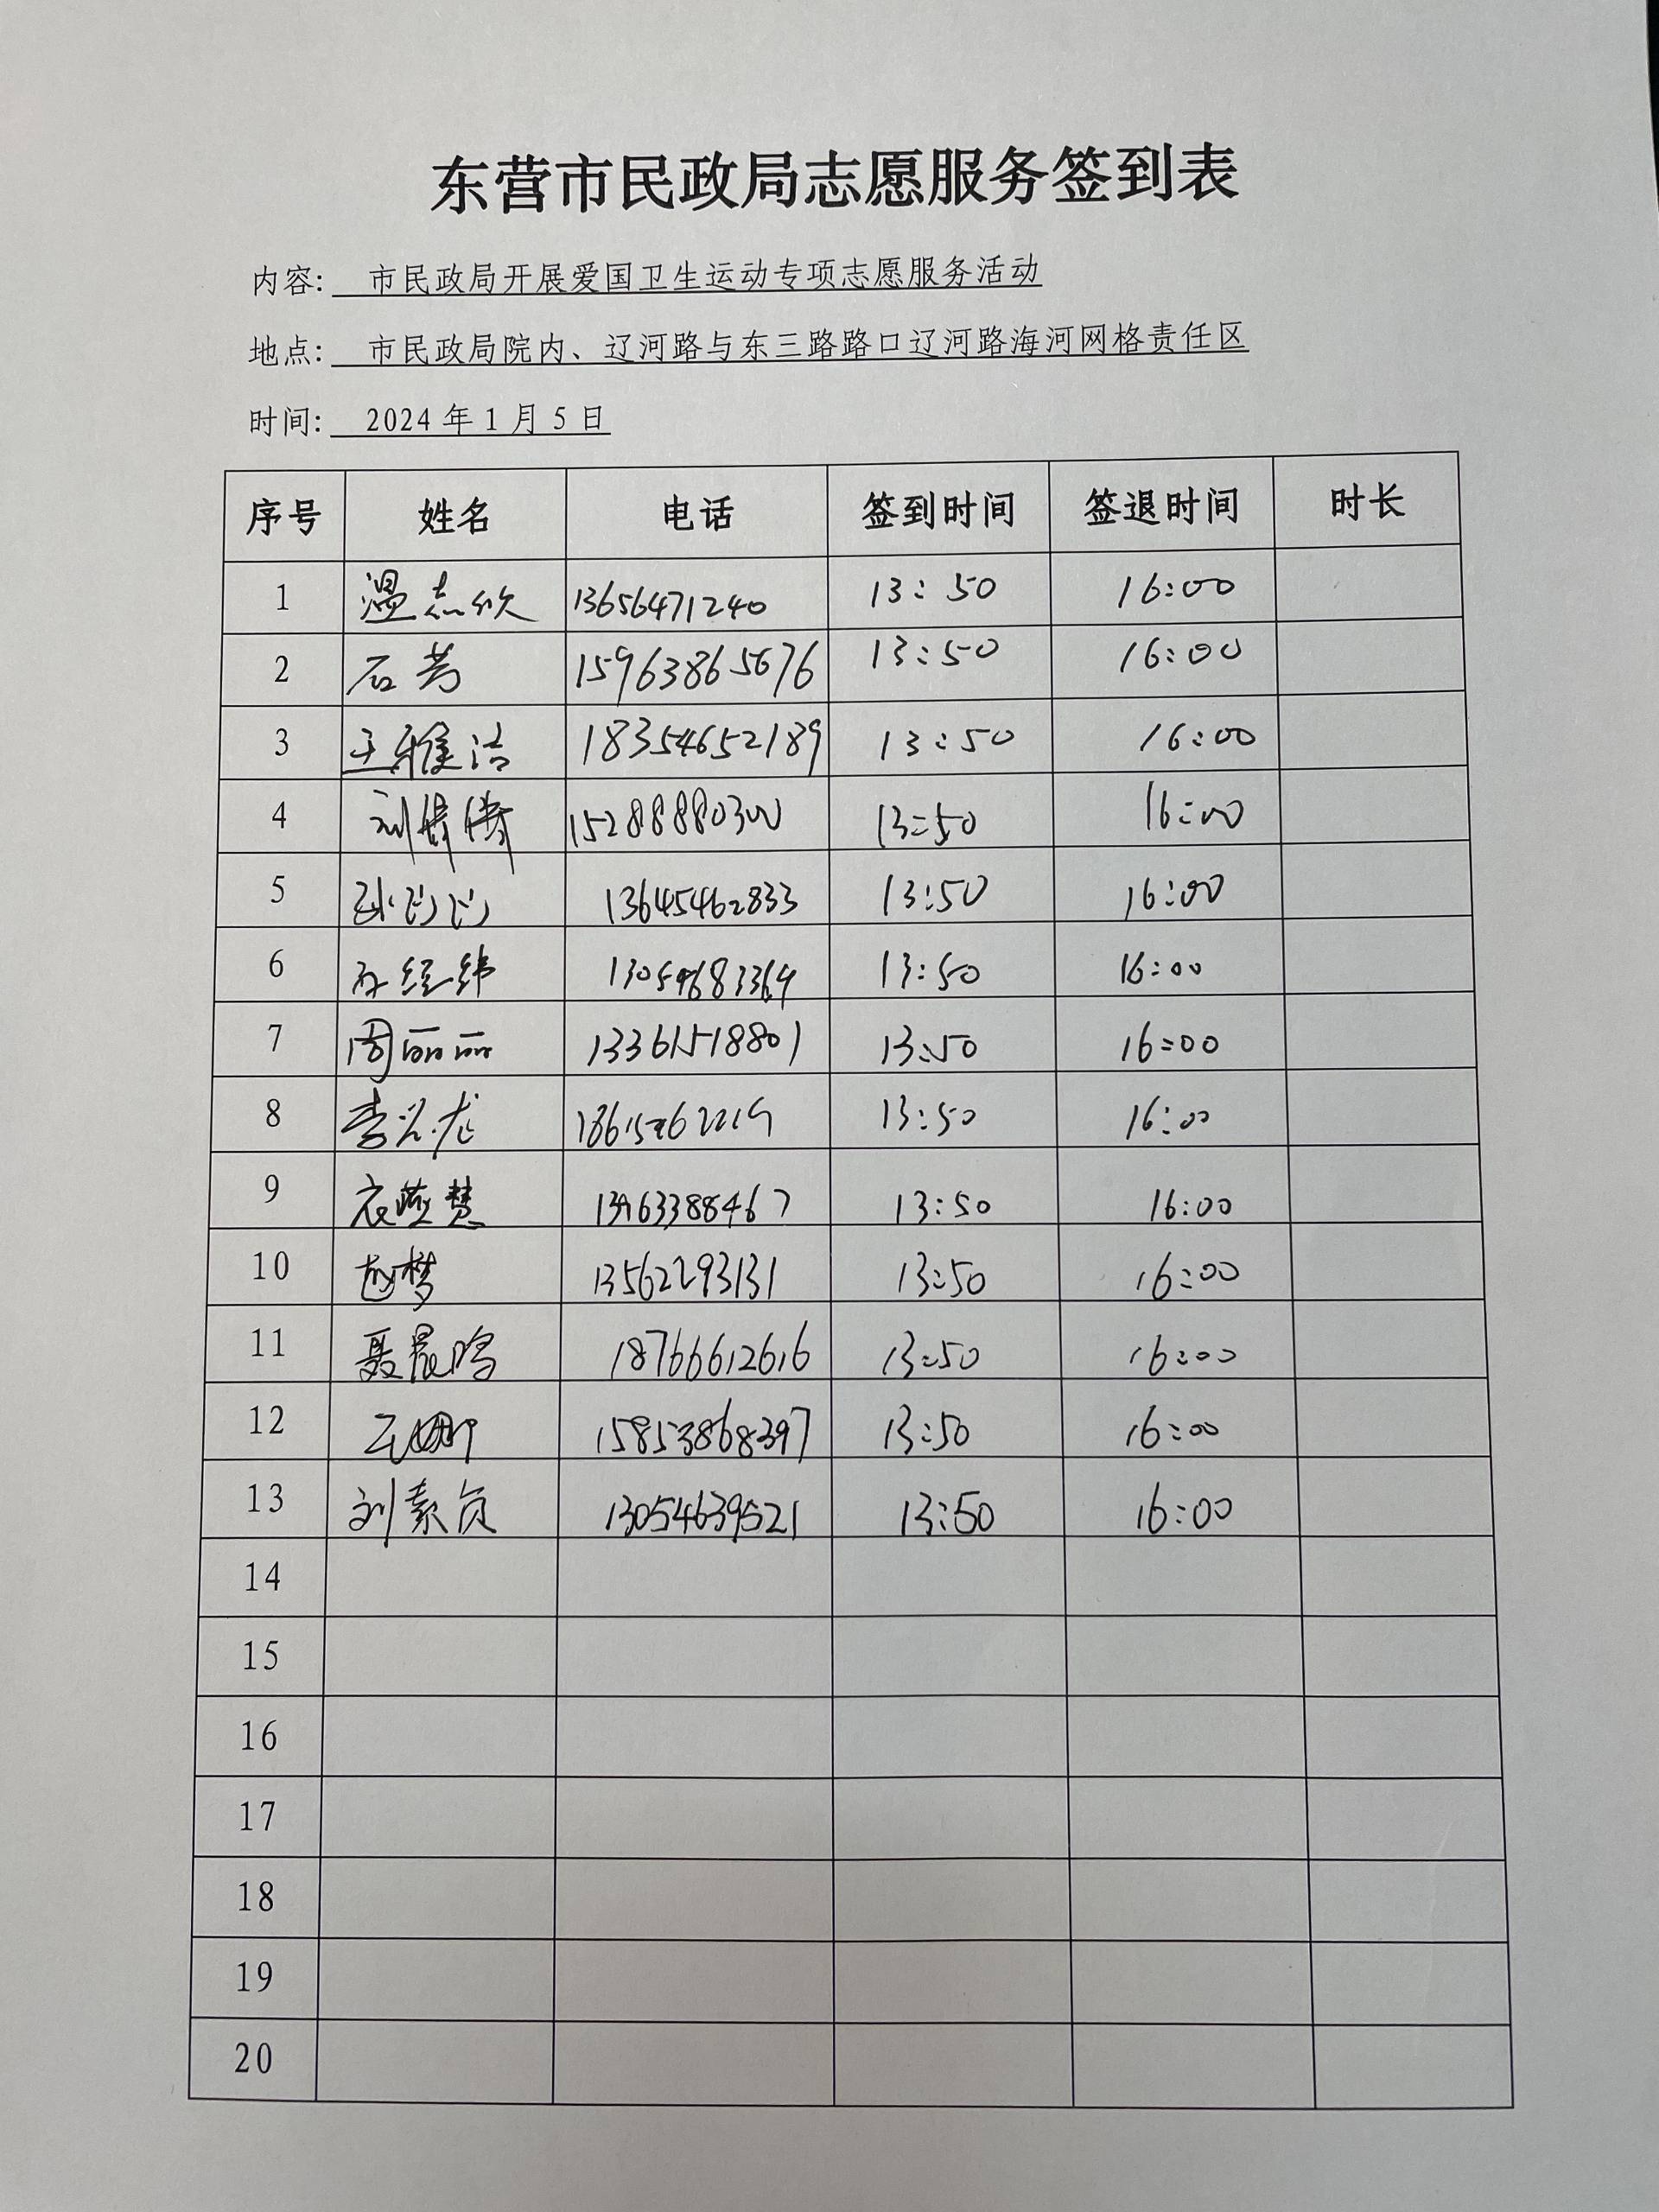 东营市民政局志愿服务签到表
内容: 市民政局开展爱国卫生运动专项志愿服务活动
地点: 市民政局院内、辽河路与东三路路口辽河路海河网格责任区
时间: 2024年1月5日
序号 姓名 电话 签到时间 签退时间 时长
1 温志欣 13656471240 13:50 16:00
2 石芳 15963865676 13:50 16:00
3 王雅洁 18354652189 13:50 16:00
4 刘 15288880300 13:50 16:00
5 13645462833 13:50 16:00
6 经纬 13:50 16:00
7 周丽丽 13361518801 13:50 16:00
8 李 龙 13:50 16:00
9 衣 慧 13963388467 13:50 16:00
10 赵梦 13562293131 13:50 16:00
11 聂晨鸣 18766612616 13:50 16:00
12 王娜 15853868397 13:50 16:00
13 刘素贞 13054639521 13:50 16:00
14
15
16
17
18
19
20